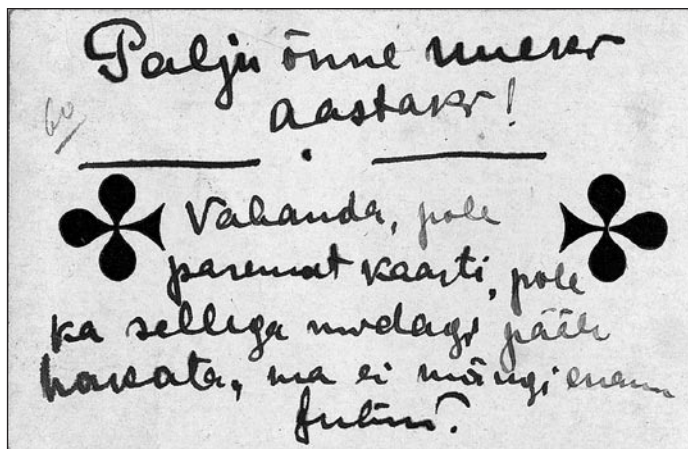 Palju õnne uueks
aastaks!
60
Vabanda, pole
paremat kaarti, pole
ka sellega midagi pääle
hakata, ma ei mängi enam